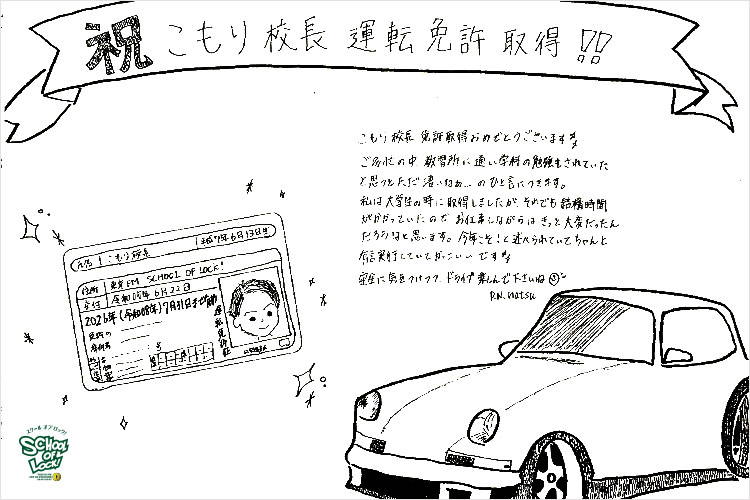 祝 こもり校長 運転免許 取得!!
こもり校長 免許取得おめでとうございます
ご多忙の中 教習所に通い学科の勉強もされていた
と思うとただ凄いなぁ…のひと言につきます。
私は大学生の時に取得しましたが、それでも結構時間
がかかっていたので お仕事しながらは きっと大変だったん
だろうなと思います。今年こそ!と述べられていてちゃんと
有言実行していてかっこいいです
安全に気をつけつつ ドライブ楽しんで下さいね
P.N. natsu
氏名 こもり校長 平成7年6月13日生
住所 東京FM SCHOOL OF LOCK!
交付 令和05年6月22日
2026年(令和08年)7月31日まで有効
免許の
条件等
運転免許証
スクール オブ ロック!
SCHOOL OF LOCK!